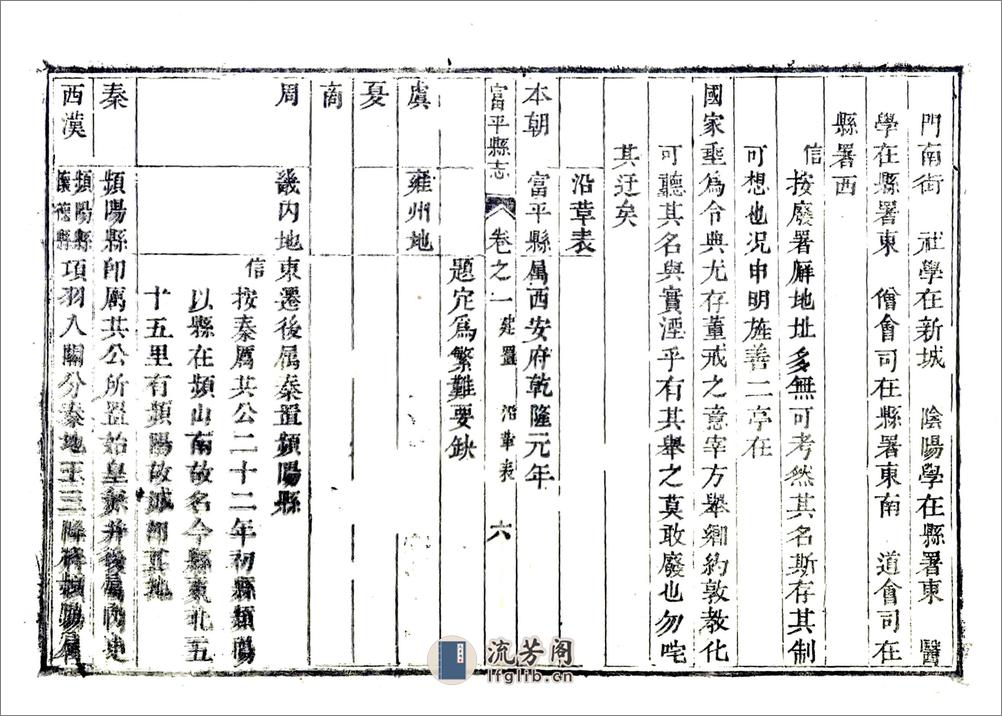 門南街　社學在新城　陰陽學在縣署東　醫
學在縣署東　僧會司在縣署東南　道會司在
縣署西
信按廢署廨地址多無可考然其名斯存其制
可想也况申明旌善二亭在
國家垂爲令典尤存董戒之意宰方舉鄉約敦教化
可聽其名與實湮乎有其舉之莫敢廢也勿咤
其迂矣
沿革表
本朝　富平縣屬西安府乾隆元年
題定爲繁難要缺
富平縣志　卷之一　建置　沿革表　六
虞　雍州地
夏
商
周　畿内地東遷後属秦置頻陽縣
信按秦厲共公二十二年初縣頻陽
以縣在頻山南故名今縣東北五
十五里有頻陽故城卽其地
秦　頻陽縣卽厲共公所置始皇兼并後屬内史
西漢　頻陽縣　懷德縣　項羽入關分秦地王三降將頻陽屬
流芳阁
lfglib.cn